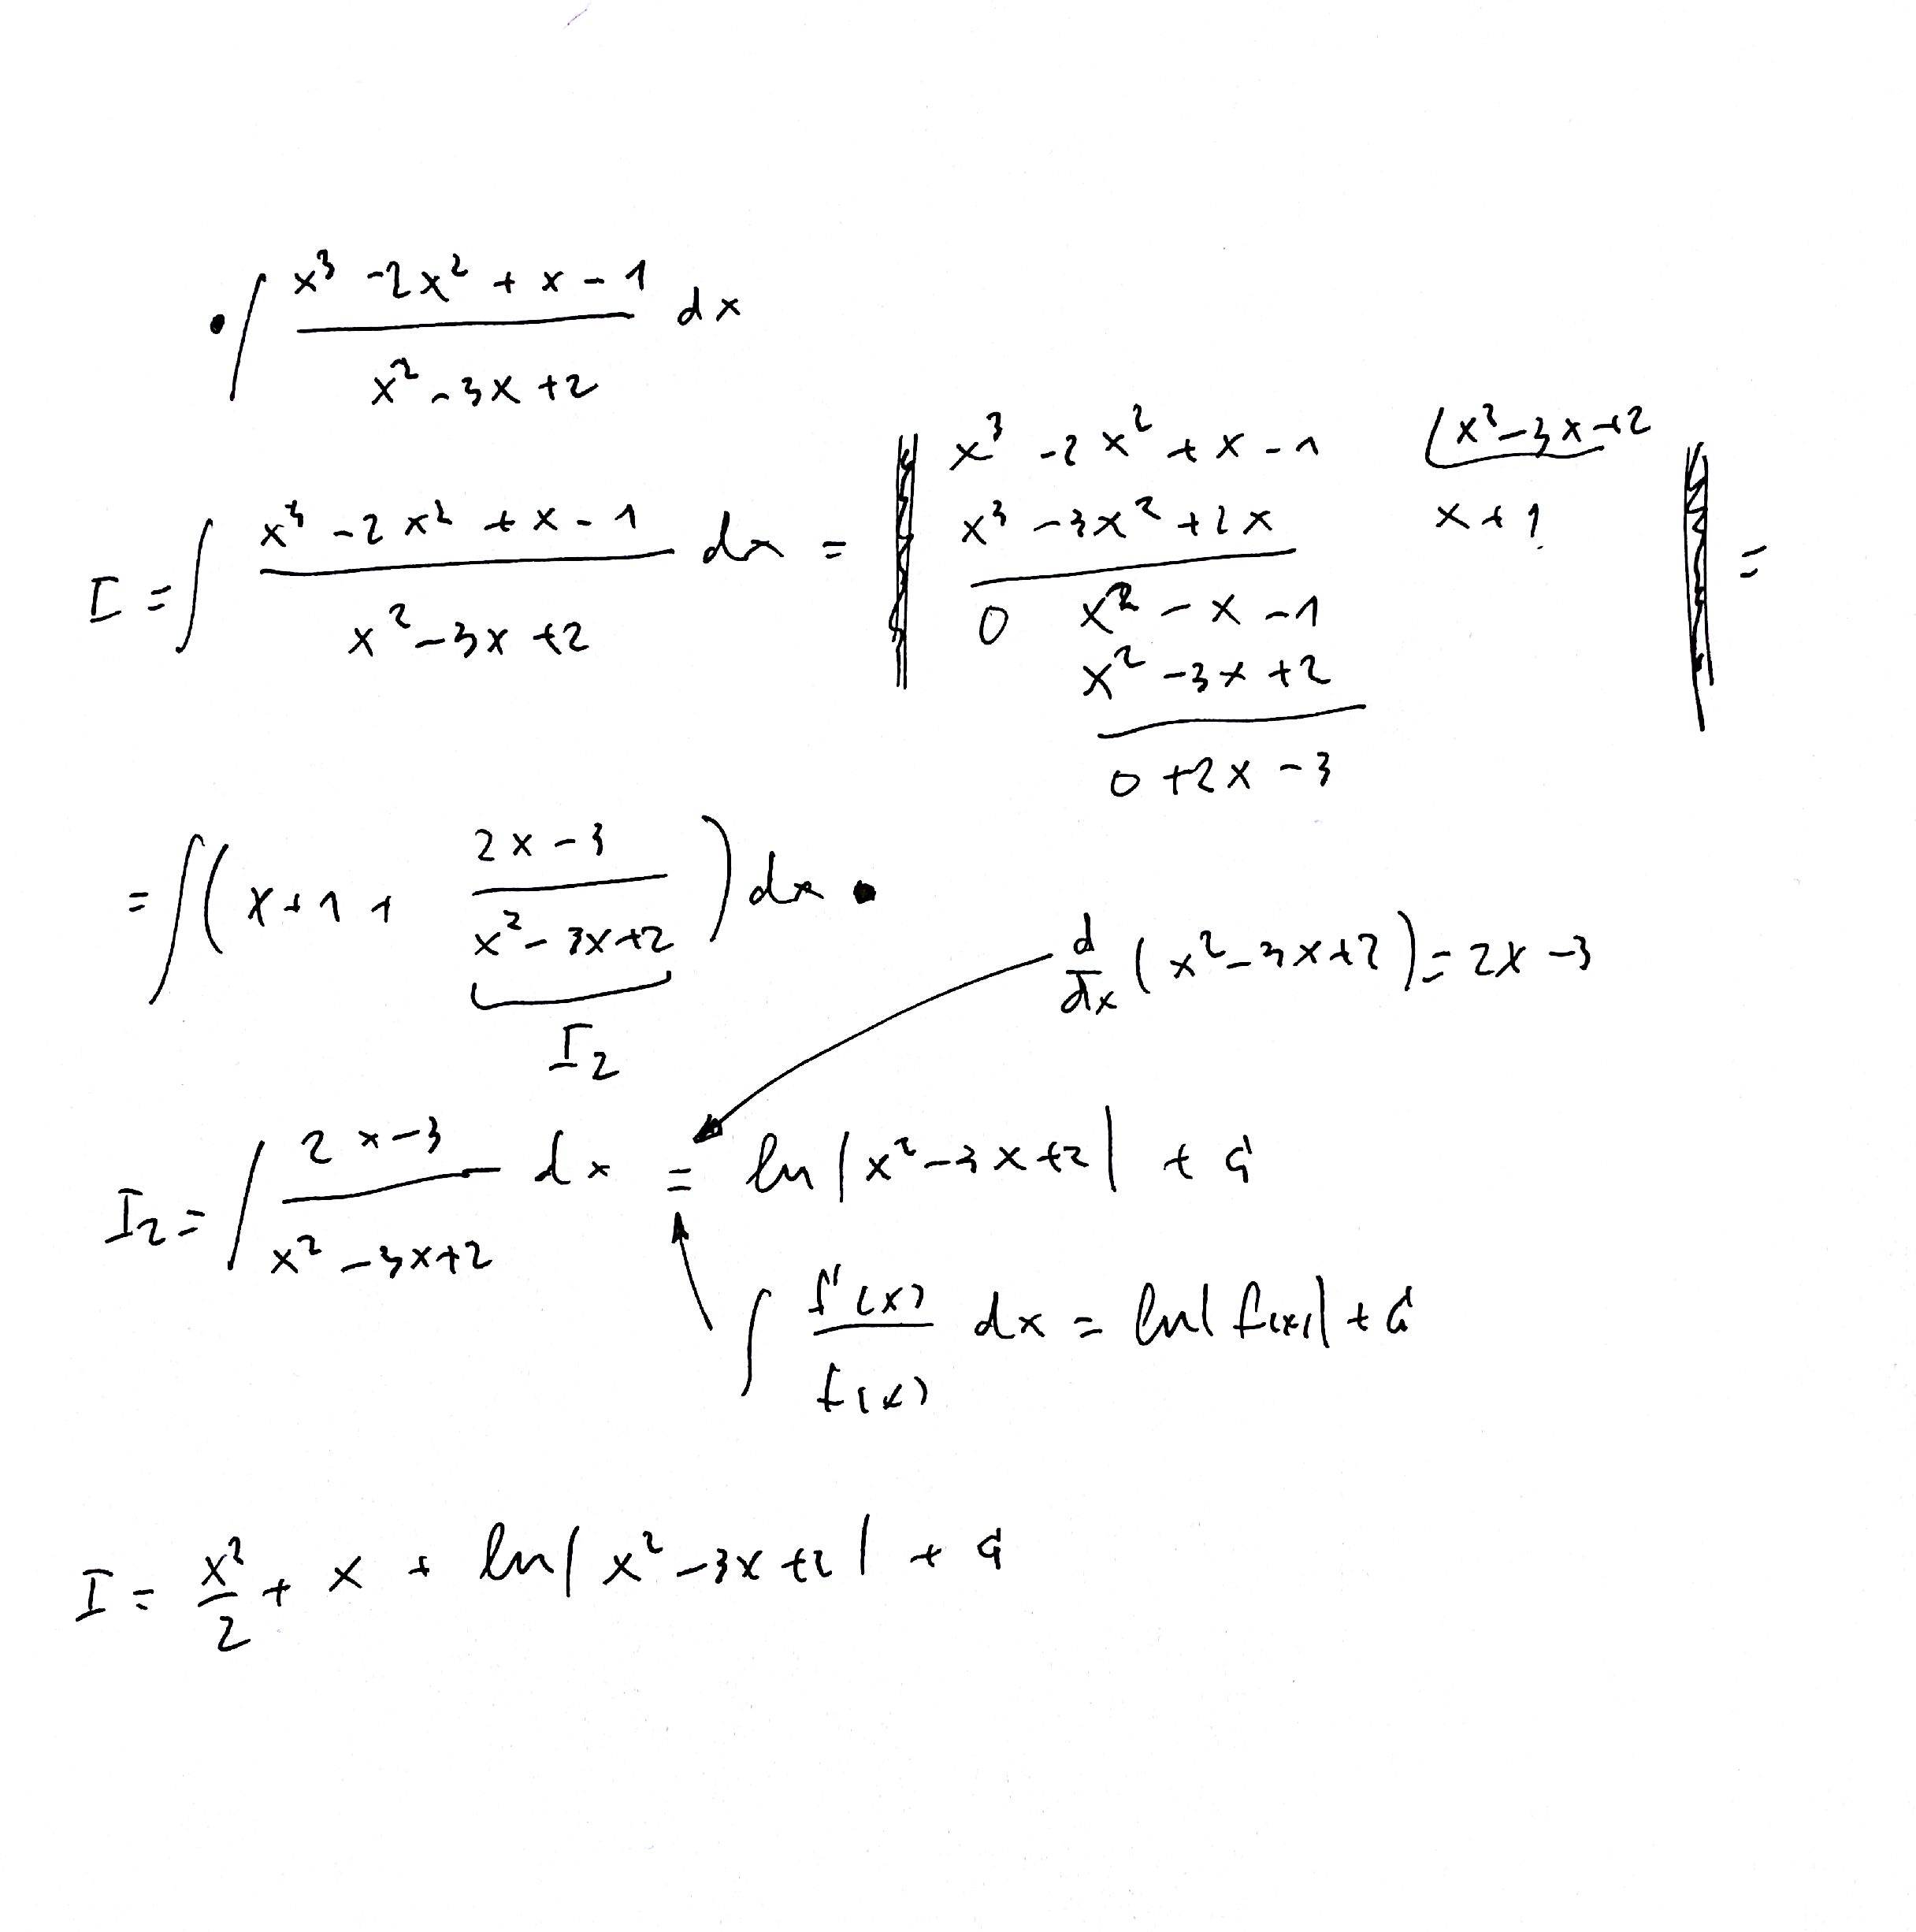 • ∫ (x³ - 2x² + x - 1)/(x² - 3x + 2) dx
I = ∫ (x³ - 2x² + x - 1)/(x² - 3x + 2) dx = ‖ x³ - 2x² + x - 1 | x² - 3x + 2
x³ - 3x² + 2x    x + 1 ‖ =
0 x² - x - 1
x² - 3x + 2
0 + 2x - 3
= ∫ (x + 1 + (2x - 3)/(x² - 3x + 2)) dx •
I₂
d/dx (x² - 3x + 2) = 2x - 3
I₂ = ∫ (2x - 3)/(x² - 3x + 2) dx = ln|x² - 3x + 2| + C
∫ f'(x)/f(x) dx = ln|f(x)| + C
I = x²/2 + x + ln|x² - 3x + 2| + C